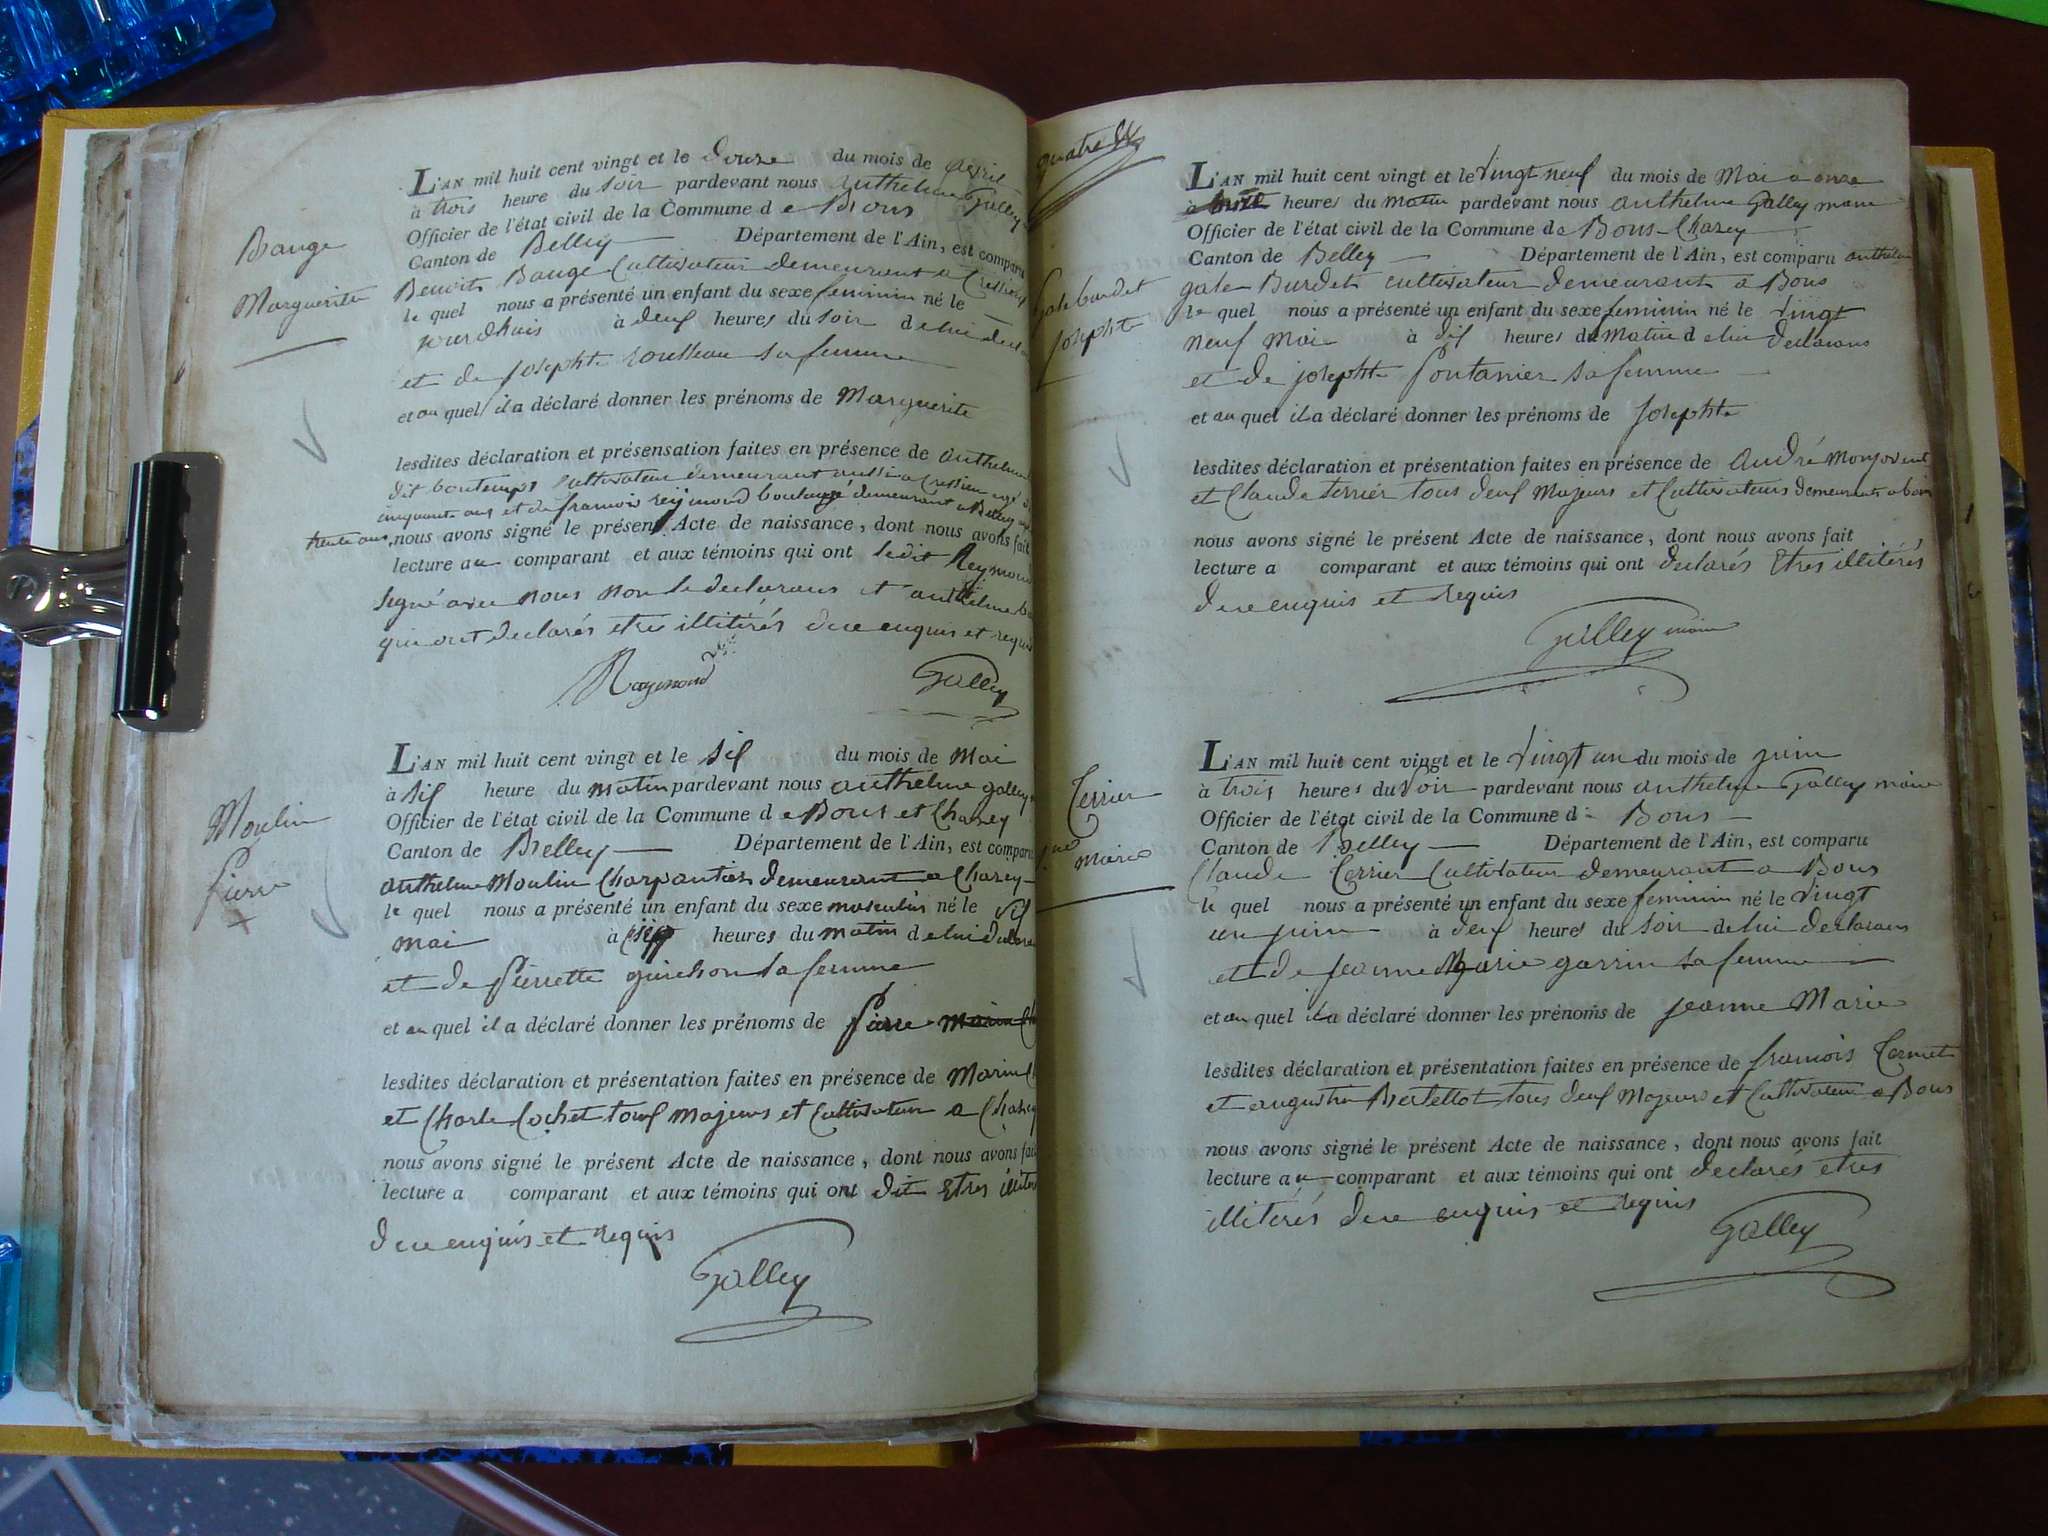 Bauge
Marguerite
L'AN mil huit cent vingt et le douze du mois de avril
à trois heure du soir pardevant nous anthelme Galley
Officier de l'état civil de la Commune d e Bons
Canton de Belley Département de l'Ain, est comparu
Benoit Bauge Cultivateur demeurant a Cressieu
le quel nous a présenté un enfant du sexe feminin né le
jourdhuis à deux heures du soir de lui
et de Josephte rousseau sa femme
et au quel il a déclaré donner les prénoms de Marguerite
lesdites déclaration et présensation faites en présence de anthelme
dit bontemps Cultivateur demeurant aussi a Cressieu agé
cinquante ans et de francois reymond boulangé demeurant a Belley
trente ans, nous avons signé le présent Acte de naissance, dont nous avons fait
lecture au comparant et aux témoins qui ont ledit Reymond
signé avec nous non le declarans et anthelme
qui ont declarés etres illitérés de ce enquis et requis
Raymond Galley
Moulin
Pierre
L'AN mil huit cent vingt et le six du mois de Mai
à six heure du matin pardevant nous anthelme galley
Officier de l'état civil de la Commune d e Bons et Chazey
Canton de Belley Département de l'Ain, est comparu
anthelme Moulin Charpantier demeurant a Chazey
le quel nous a présenté un enfant du sexe masculin né le six
mai à heures du matin de lui
et de Pierrette guichon sa femme
et au quel il a déclaré donner les prénoms de Pierre
lesdites déclaration et présentation faites en présence de Marin
et Charle Cochet touf majeurs et Cultivateur a Chazey
nous avons signé le présent Acte de naissance, dont nous avons fait
lecture a comparant et aux témoins qui ont dit Etres
de ce enquis et requis
Galley
quatre
Gale burdet
Josephte
L'AN mil huit cent vingt et le vingt neuf du mois de Mai a onze
à heures du matin pardevant nous anthelme Galley maire
Officier de l'état civil de la Commune de Bons-Chazey
Canton de Belley Département de l'Ain, est comparu anthelme
gale Burdet cultivateur demeurant a Bons
le quel nous a présenté un enfant du sexe feminin né le vingt
neuf Mai à dix heures du Matin de lui declarans
et de josephte fontanier sa femme
et au quel il a déclaré donner les prénoms de Josephte
lesdites déclaration et présentation faites en présence de André Monjovent
et Claude terrier tous deux Majeurs et Cultivateurs demeurants a bons
nous avons signé le présent Acte de naissance, dont nous avons fait
lecture a comparant et aux témoins qui ont declarés Etres illitérés
de ce enquis et requis
Galley maire
Terrier
jne marie
L'AN mil huit cent vingt et le vingt un du mois de juin
à trois heures du soir pardevant nous anthelme Galley maire
Officier de l'état civil de la Commune d Bons
Canton de Belley Département de l'Ain, est comparu
Claude Terrier Cultivateur demeurant a Bons
le quel nous a présenté un enfant du sexe feminin né le vingt
un juin à deux heures du soir de lui declarans
et de jeanne Marie garrin sa femme
et au quel il a déclaré donner les prénoms de jeanne Marie
lesdites déclaration et présentation faites en présence de francois Termet
et augustin Bertellot tous deux Majeurs et Cultivateurs a Bons
nous avons signé le présent Acte de naissance, dont nous avons fait
lecture au comparant et aux témoins qui ont declarés etres
illitérés de ce enquis et requis
Galley